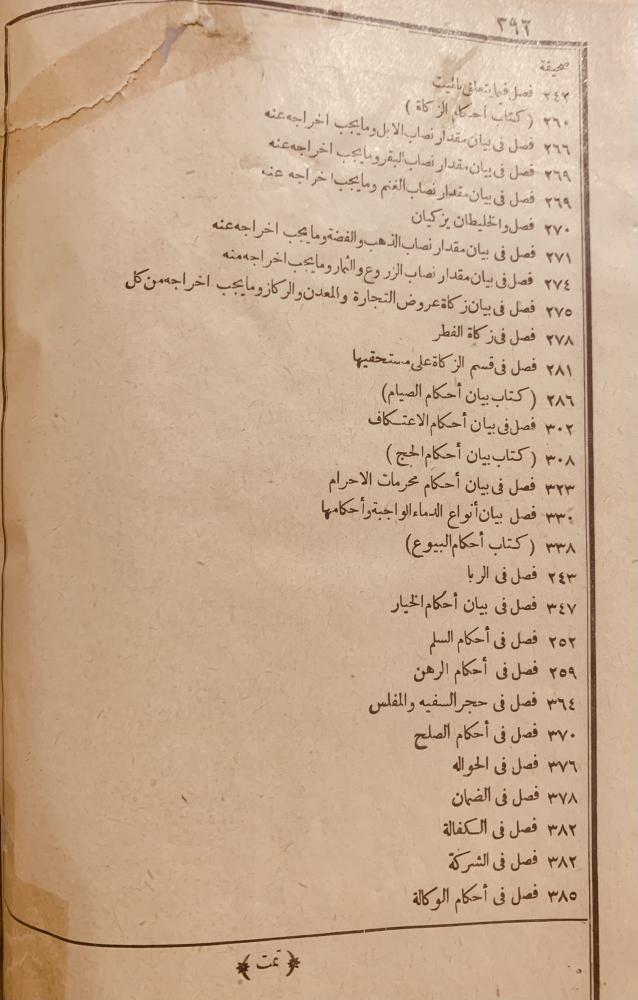 ٣٩٢
صحيفة
٢٤٣ فصل فيما يتعلق بالميت
٢٦٠ (كتاب أحكام الزكاة)
٢٦٦ فصل فى بيان مقدار نصاب الابل وما يجب اخراجه عنه
٢٦٩ فصل فى بيان مقدار نصاب البقر وما يجب اخراجه عنه
٢٦٩ فصل فى بيان مقدار نصاب الغنم وما يجب اخراجه عنه
٢٧٠ فصل والخليطان يزكيان
٢٧١ فصل فى بيان مقدار نصاب الذهب والفضة وما يجب اخراجه عنه
٢٧٤ فصل فى بيان مقدار نصاب الزروع والثمار وما يجب اخراجه منه
٢٧٥ فصل فى بيان زكاة عروض التجارة والمعدن والركاز وما يجب اخراجه من كل
٢٧٨ فصل فى زكاة الفطر
٢٨١ فصل فى قسم الزكاة على مستحقيها
٢٨٦ (كتاب بيان أحكام الصيام)
٣٠٢ فصل فى بيان أحكام الاعتكاف
٣٠٨ (كتاب بيان أحكام الحج)
٣٢٣ فصل فى بيان أحكام محرمات الاحرام
٣٣٠ فصل بيان أنواع الدماء الواجبة وأحكامها
٣٣٨ (كتاب أحكام البيوع)
٢٤٣ فصل فى الربا
٣٤٧ فصل فى بيان أحكام الخيار
٢٥٢ فصل فى أحكام السلم
٢٥٩ فصل فى أحكام الرهن
٣٦٤ فصل فى حجر السفيه والمفلس
٣٧٠ فصل فى أحكام الصلح
٣٧٦ فصل فى الحواله
٣٧٨ فصل فى الضمان
٣٨٢ فصل فى الكفالة
٣٨٢ فصل فى الشركة
٣٨٥ فصل فى أحكام الوكالة
﴿تمت﴾